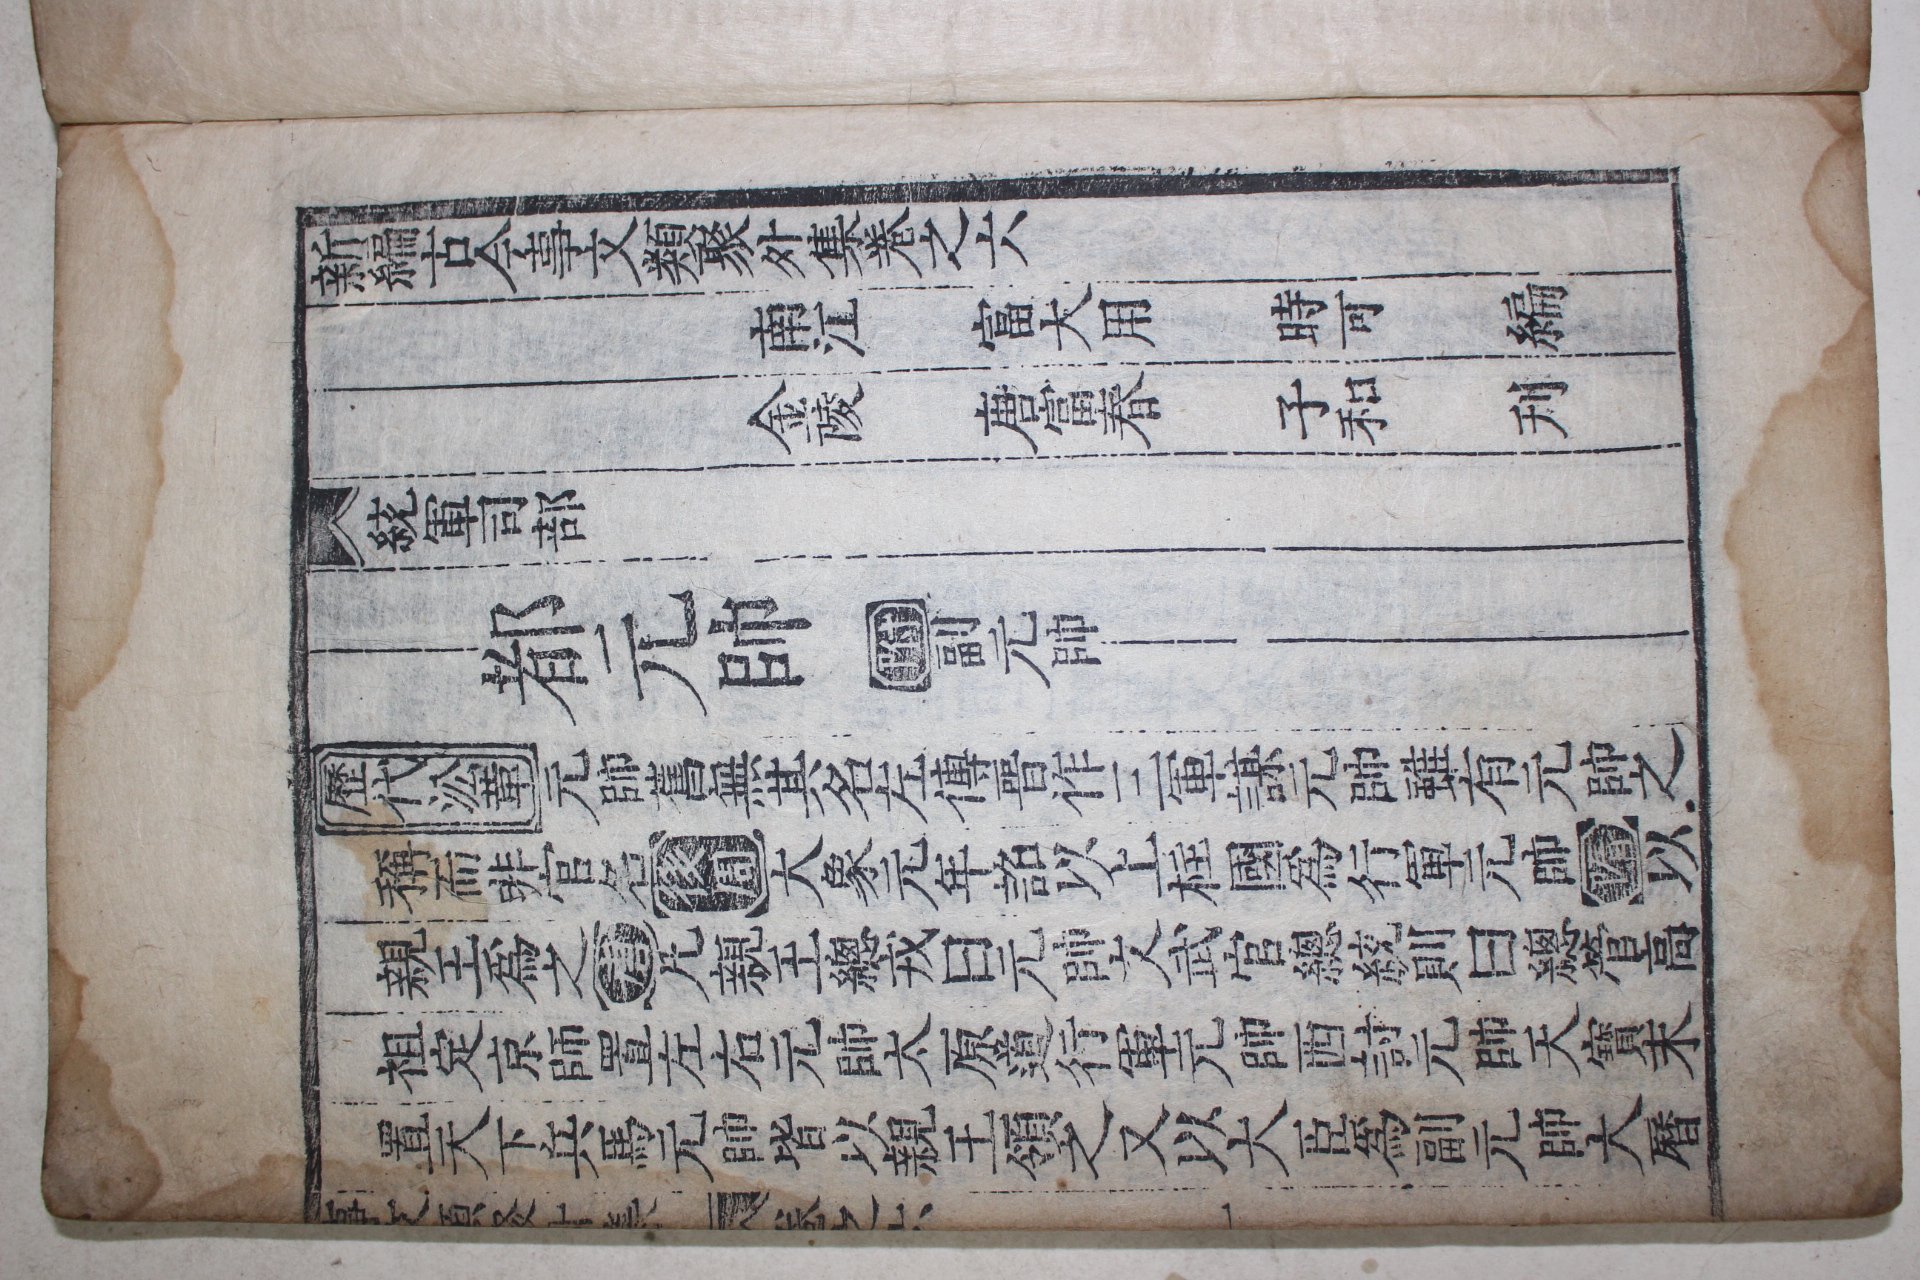 新編古今事文類聚外集卷之六
南江 富大用 時可 編
金陵 唐富春 子和 刋
統軍司部
都元帥 附副元帥
歷代㳂革元帥舊無其名左傳晋作三軍謀元帥雖有元帥之
稱而非官名後周大象元年詔以上柱國爲行軍元帥隋以
親王爲之唐凡親王總戎曰元帥文武官總統則曰總管高
祖定京師置左右元帥太原道行軍元帥西討元帥天寶末
置天下兵馬元帥皆以親王領之又以大臣爲副元帥大曆
事文類聚外集 卷之六 一